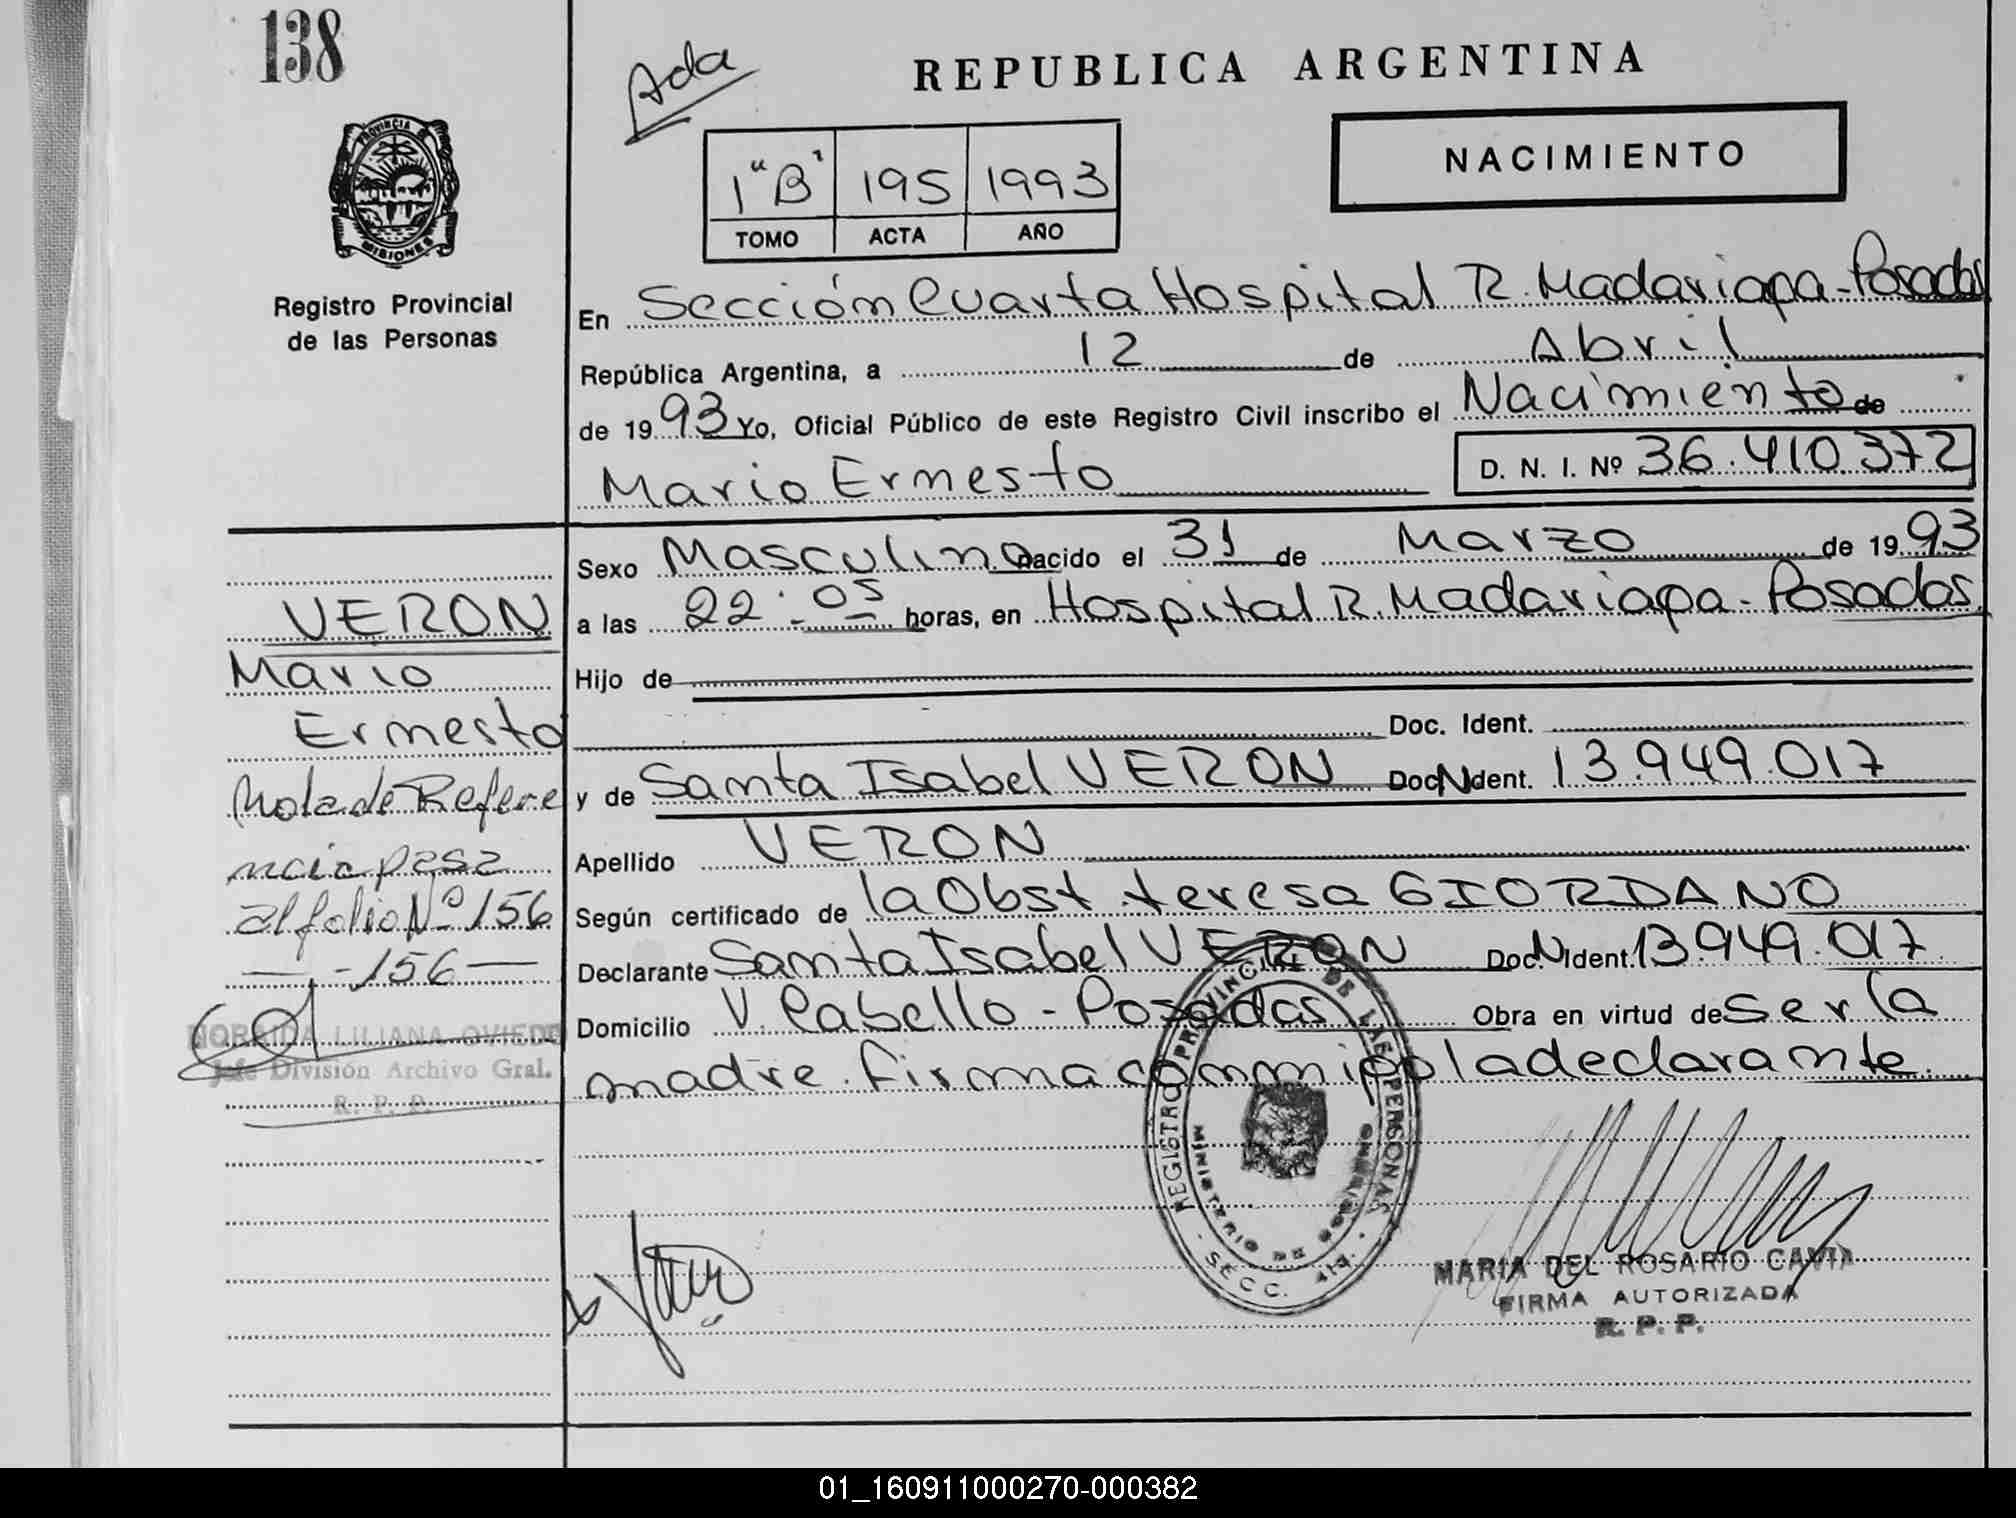 138
Ada
REPUBLICA ARGENTINA
NACIMIENTO
1 "B" 195 1993
TOMO ACTA AÑO
PROVINCIA DE MISIONES
Registro Provincial
de las Personas
En Sección Cuarta Hospital R. Madariaga - Posadas
República Argentina, a 12 de Abril
de 1993 Yo, Oficial Público de este Registro Civil inscribo el Nacimiento de
Mario Ernesto D. N. I. Nº 36.410.372
Sexo Masculino nacido el 31 de Marzo de 1993
a las 22:05 horas, en Hospital R. Madariaga - Posadas
Hijo de
Doc. Ident.
y de Santa Isabel VERON Doc N Ident. 13.949.017
Apellido VERON
Según certificado de la Obst. teresa GIORDANO
Declarante Santa Isabel VERON Doc. N Ident. 13.949.017
Domicilio V. Cabello - Posadas Obra en virtud de ser la
madre. firma conmigo la declarante.
VERON
Mario
Ernesto
Nota de Refere
ncia pasa
al folio Nº 156
- 156 -
NORAIDA LILIANA OVIEDO
Jefe División Archivo Gral.
R. P. P.
REGISTRO PROVINCIAL DE LAS PERSONAS
MINISTERIO DE GOBIERNO
SECC. 4ta.
MARIA DEL ROSARIO CAVIA
FIRMA AUTORIZADA
R. P. P.
01_160911000270-000382